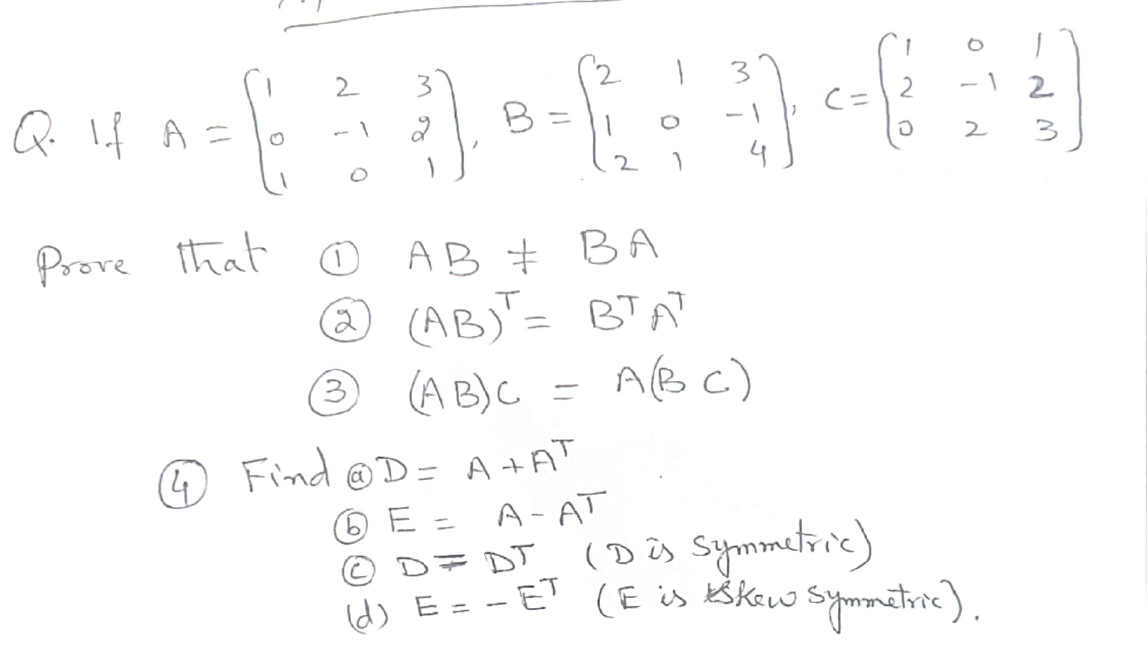 Q. If A = [1 2 3; 0 -1 2; 1 0 1], B = [2 1 3; 1 0 -1; 2 1 4], C = [1 0 1; 2 -1 2; 0 2 3]
Prove that ① AB ≠ BA
② (AB)ᵀ = Bᵀ Aᵀ
③ (AB)C = A(BC)
④ Find ⓐ D = A + Aᵀ
ⓑ E = A - Aᵀ
ⓒ D = Dᵀ (D is symmetric)
(d) E = - Eᵀ (E is skew symmetric).